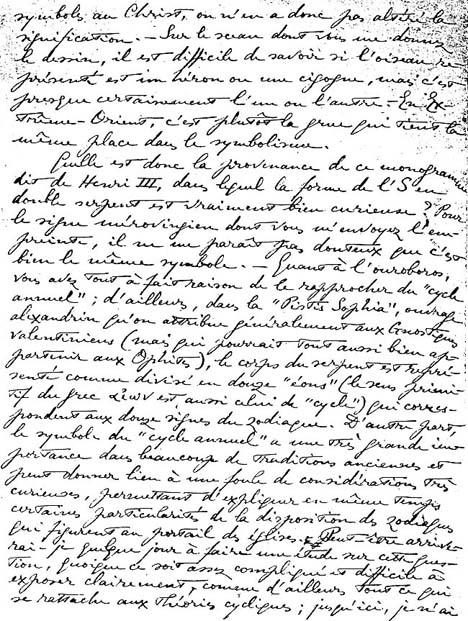 symbole au Christ, on n'en a donc pas altéré la
signification. — Sur le sceau dont vous me donnez
le dessin, il est difficile de savoir si l'oiseau re-
présenté est un héron ou une cigogne, mais c'est
presque certainement l'un ou l'autre. — En Ex-
trême-Orient, c'est plutôt la grue qui tient la
même place dans le symbolisme.
Quelle est donc la provenance de ce monogramme
dit de Henri III, dans lequel la forme de l'S en
double serpent est vraiment bien curieuse ? Pour
le signe mérovingien dont vous m'envoyez l'em-
preinte, il ne me paraît pas douteux que c'est
bien le même symbole. — Quant à l'ouroboros,
vous avez tout à fait raison de le rapprocher du "cycle
annuel" ; d'ailleurs, dans la "Pistis Sophia", ouvrage
alexandrin qu'on attribue généralement aux Gnostiques
valentiniens (mais qui pourrait tout aussi bien ap-
partenir aux Ophites), le corps du serpent est repré-
senté comme divisé en douze "éons" (le sens primi-
tif du grec αἰών est aussi celui de "cycle") qui corres-
pondent aux douze signes du zodiaque. D'autre part,
le symbole du "cycle annuel" a une très grande im-
portance dans beaucoup de traditions anciennes et
peut donner lieu à une foule de considérations très
curieuses, permettant d'expliquer en même temps
certaines particularités de la disposition des zodiaques
qui figurent au portail des églises. Peut-être arrive-
rai-je quelque jour à faire une étude sur cette ques-
tion, quoique ce soit assez compliqué et difficile à
exposer clairement, comme d'ailleurs tout ce qui
se rattache aux théories cycliques ; jusqu'ici, je n'ai